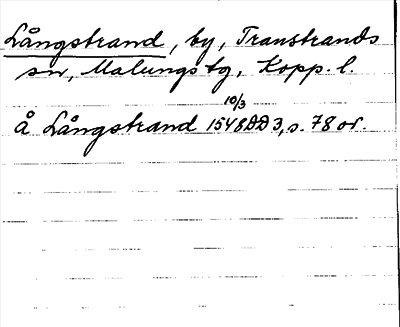 Långstrand, by, Transtrands
sn, Malungs tg, Kopp. l.
10/3
å Långstrand 1548 DD 3, s. 78 or.